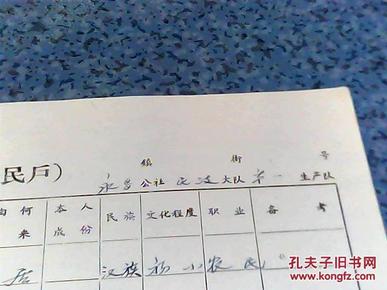 镇 街 号
民户) 永昌公社 民 大队 第一 生产队
何来 本人成份 民族 文化程度 职业 备考
居 汉族 初小 农民
孔夫子旧书网
www.kongfz.com